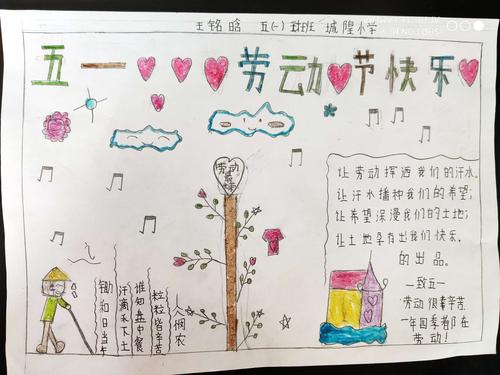 王铭晗 五(一) 班 城隍小学
五一劳动节快乐
劳动最光荣
让劳动挥洒我们的汗水,
让汗水播种我们的希望;
让希望深浸我们的土地;
让土地孕育出我们快乐,
的出品。
—致五一
劳动很辛苦
一年四季着都在
劳动!
人悯农
锄和日当午
汗滴禾下土
谁知盘中餐
粒粒皆辛苦